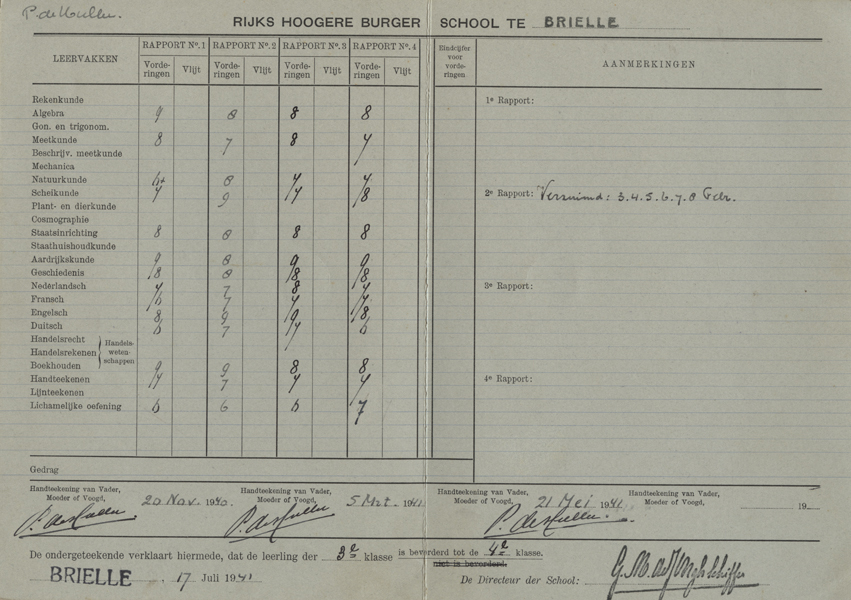 P. de Hullu.
RIJKS HOOGERE BURGER SCHOOL TE BRIELLE
LEERVAKKEN RAPPORT No. 1 RAPPORT No. 2 RAPPORT No. 3 RAPPORT No. 4 Eindcijfer voor vorderingen AANMERKINGEN
Vorderingen Vlijt Vorderingen Vlijt Vorderingen Vlijt Vorderingen Vlijt
Rekenkunde 1e Rapport:
Algebra 9 8 8 8
Gon. en trigonom.
Meetkunde 8 7 8 7
Beschrijv. meetkunde
Mechanica
Natuurkunde 6+ 8 7 7
Scheikunde 7 9 7 8 2e Rapport: Verzuimd: 3.4.5.6.7.8 Febr.
Plant- en dierkunde
Cosmographie
Staatsinrichting 8 8 8 8
Staathuishoudkunde
Aardrijkskunde 9 8 9 9
Geschiedenis 8 8 8 8
Nederlandsch 7 7 8 7 3e Rapport:
Fransch 6 7 7 7
Engelsch 8 9 9 8
Duitsch 6 7 7 6
Handelsrecht
Handelsrekenen Handelswetenschappen
Boekhouden 9 9 8 8
Handteekenen 7 7 7 7 4e Rapport:
Lijnteekenen
Lichamelijke oefening 6 6 6 7
Gedrag
Handteekening van Vader, Moeder of Voogd, 20 Nov. 1940. Handteekening van Vader, Moeder of Voogd, 5 Mrt. 1941 Handteekening van Vader, Moeder of Voogd, 21 Mei 1941 Handteekening van Vader, Moeder of Voogd, 19
P. de Hullu. P. de Hullu P. de Hullu.
De ondergeteekende verklaart hiermede, dat de leerling der 3e klasse is bevorderd tot de 4e klasse.
niet is bevorderd.
BRIELLE, 17 Juli 1941 De Directeur der School: